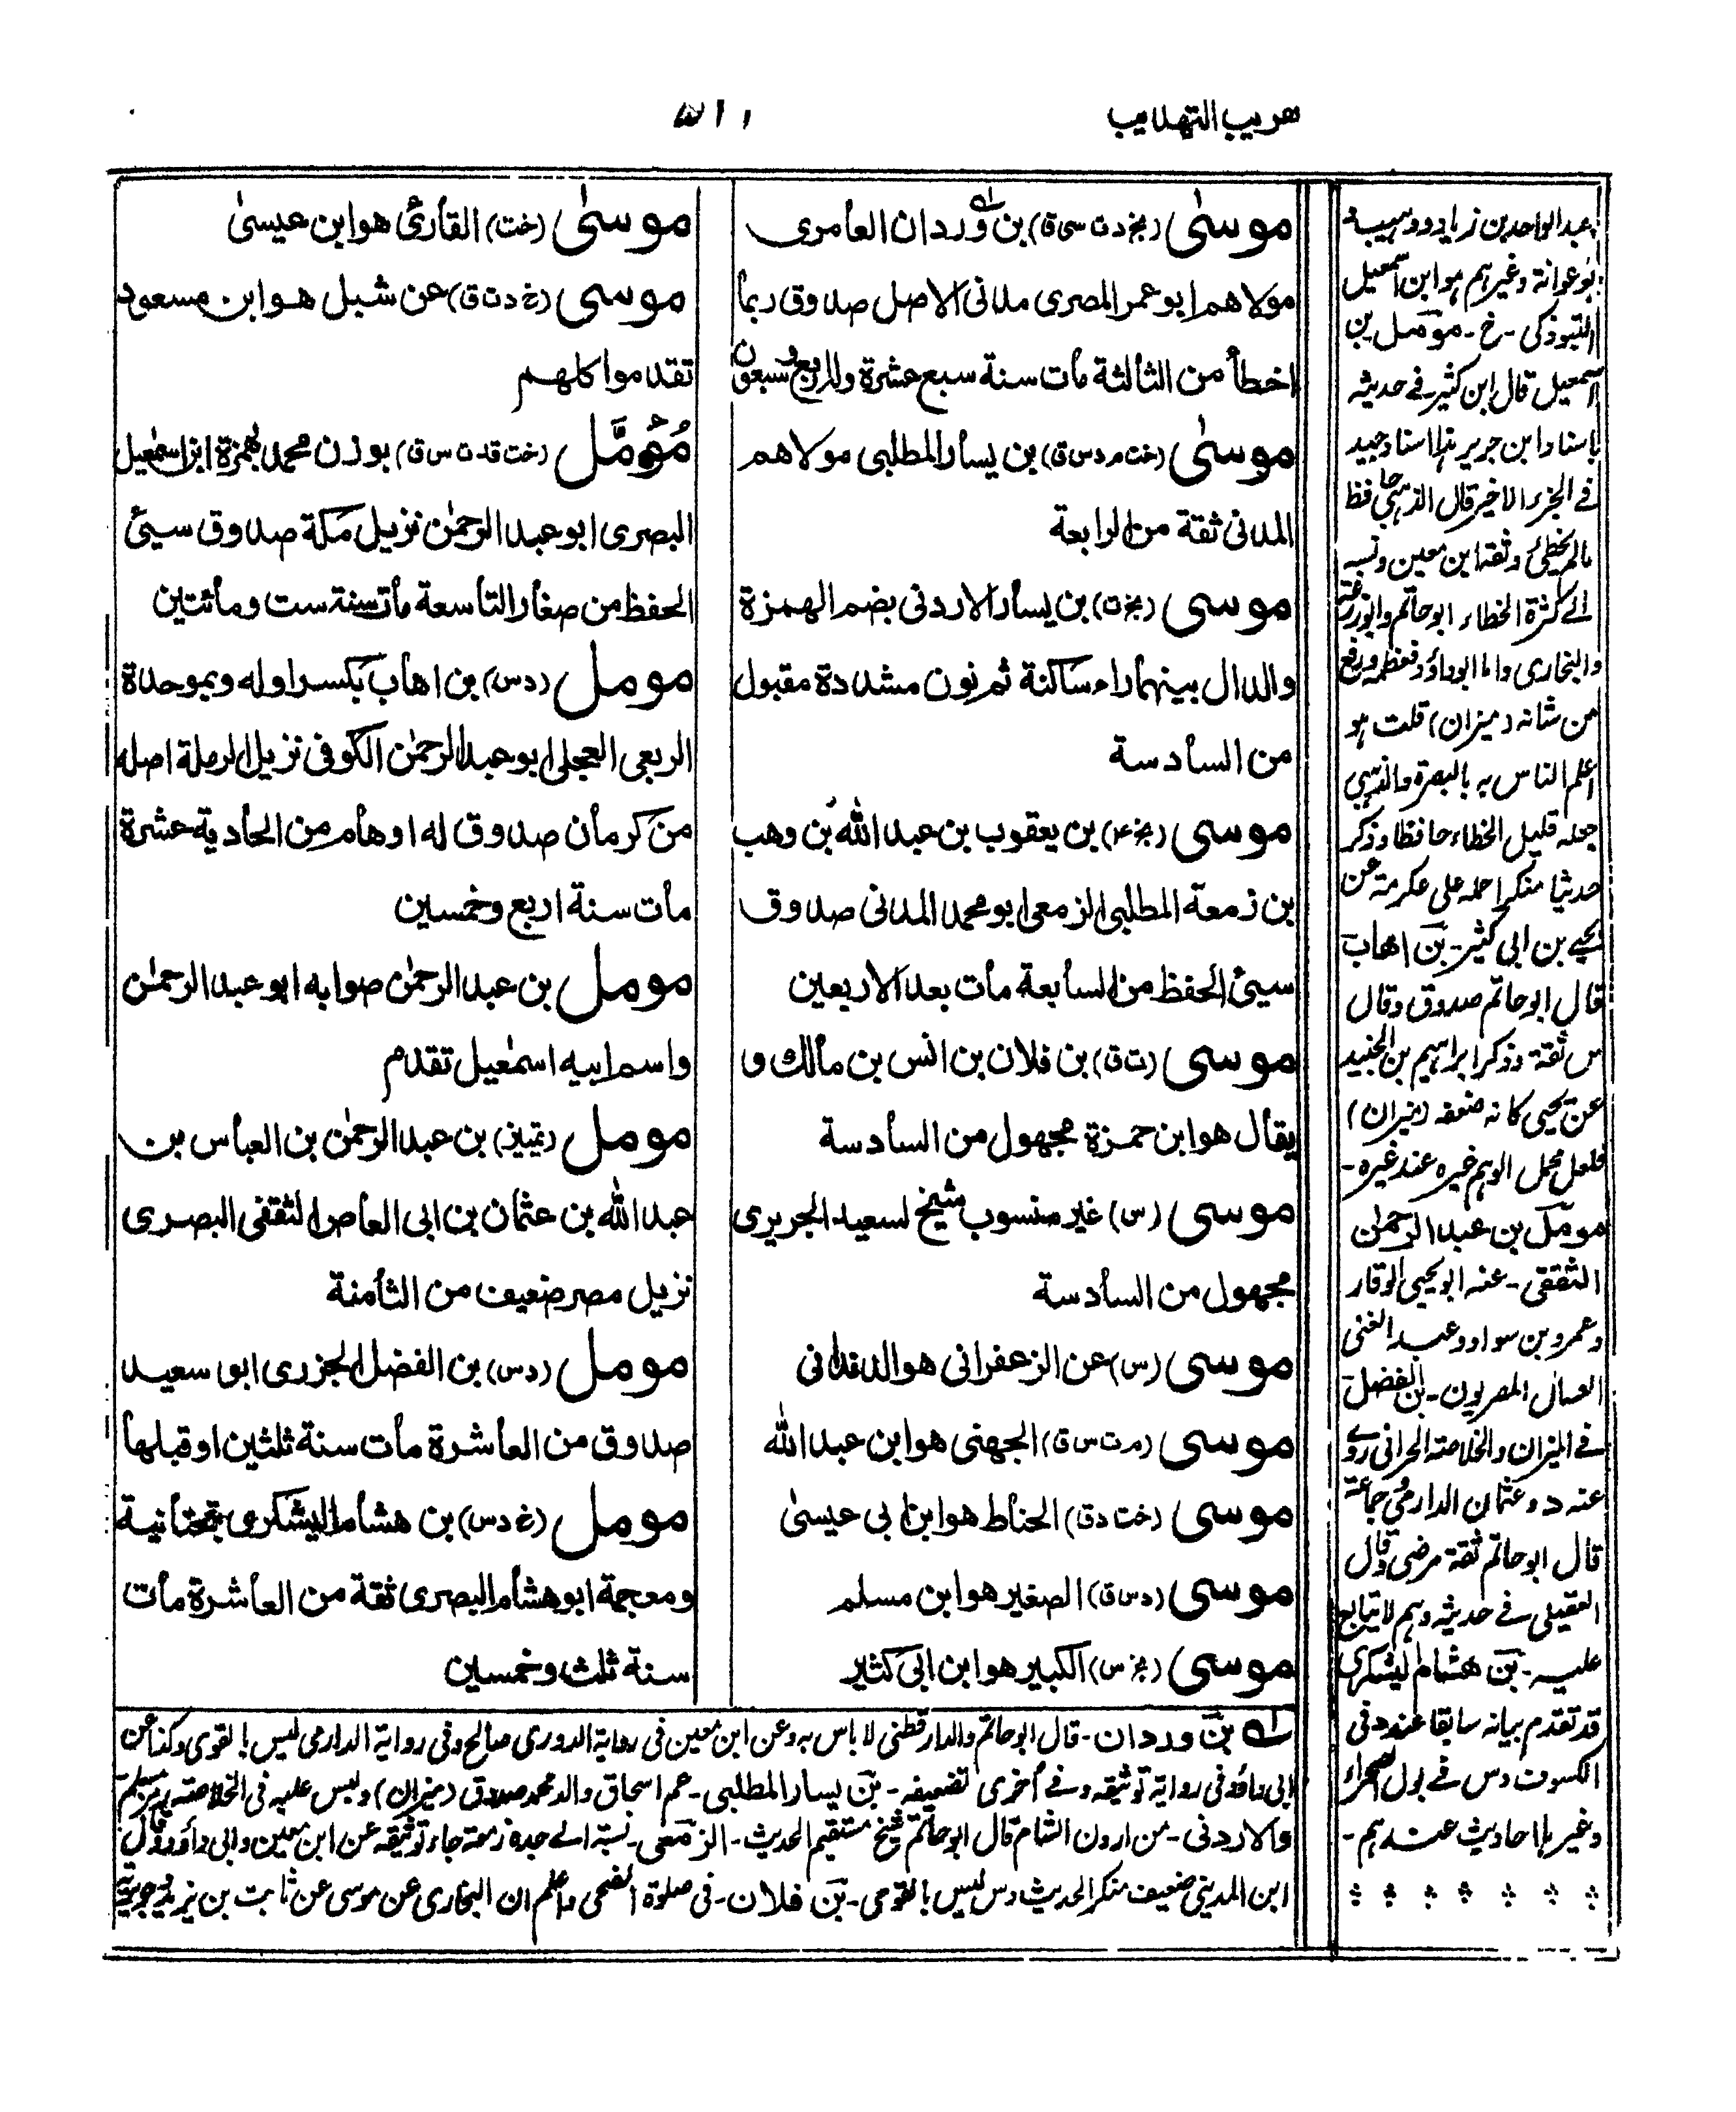 تقريب التهذيب
٥١١
موسىٰ (بخ د ت س ق) بن وردان العامري
مولاهم ابو عمر المصري مدني الاصل صدوق ربما
اخطأ من الثالثة مات سنة سبع عشرة وله اربع وسبعون
موسىٰ (خت م د س ق) بن يسار المطلبي مولاهم
المدني ثقة من الرابعة
موسى (بخ ت) بن يسار الاردني بضم الهمزة
والدال بينهما راء ساكنة ثم نون مشددة مقبول
من السادسة
موسى (بخ ٤) بن يعقوب بن عبد الله بن وهب
بن زمعة المطلبي الزمعي ابو محمد المدني صدوق
سيئ الحفظ من السابعة مات بعد الاربعين
موسى (ت ق) بن فلان بن انس بن مالك و
يقال هو ابن حمزة مجهول من السادسة
موسى (س) غير منسوب شيخ لسعيد الجريري
مجهول من السادسة
موسى (س) عن الزعفراني هو الدنداني
موسى (م ت س ق) الجهني هو ابن عبد الله
موسى (خت د ق) الحناط هو ابن ابي عيسىٰ
موسى (د س ق) الصغير هو ابن مسلم
موسى (بخ س) الكبير هو ابن ابي كثير
موسىٰ (خت) القارئ هو ابن عيسىٰ
موسى (خ د ت ق) عن شبل هو ابن مسعود
تقدموا كلهم
مُؤَمَّل (خت قد ت س ق) بوزن محمد بهمزة ابن اسمٰعيل
البصري ابو عبد الرحمٰن نزيل مكة صدوق سيئ
الحفظ من صغار التاسعة مات سنة ست ومائتين
مومل (د س) بن اهاب بكسر اوله وبموحدة
الربعي العجلي ابو عبد الرحمٰن الكوفي نزيل الرملة اصله
من كرمان صدوق له اوهام من الحادية عشرة
مات سنة اربع وخمسين
مومل بن عبد الرحمٰن صوابه ابو عبد الرحمٰن
واسم ابيه اسمٰعيل تقدم
مومل (تمييز) بن عبد الرحمٰن بن العباس بن
عبد الله بن عثمان بن ابي العاص الثقفي البصري
نزيل مصر ضعيف من الثامنة
مومل (د س) بن الفضل الجزري ابو سعيد
صدوق من العاشرة مات سنة ثلثين او قبلها
مومل (خ د س) بن هشام اليشكري بتحتانية
ومعجمة ابو هشام البصري ثقة من العاشرة مات
سنة ثلث وخمسين
عبد الواحد بن زياد ووهيب و
ابو عوانة وغيرهم هو ابن اسمعيل
التبوذكي - خ - مومل بن
اسمعيل قال ابن كثير في حديثه
باسناد ابن جرير هذا اسناد جيد
في الجزء الاخير قال الذهبي حافظ
عالم يخطئ وثقه ابن معين ونسبه
الى كثرة الخطاء ابو حاتم وابو زرعة
والبخاري واما ابو داؤد فعظمه ورفع
من شانه (ميزان) قلت هو
اعلم الناس به بالبصرة والذهبي
جعله قليل الخطاء حافظا وذكر
حديثا منكرا حمله على عكرمة عن
يحيى بن ابي كثير - بن اهاب
قال ابو حاتم صدوق وقال
س ثقة وذكر ابراهيم بن الجنيد
عن يحيى كانه ضعفه (ميزان)
فلعل محمل الوهم خبره عند غيره -
مومل بن عبد الرحمٰن
الثقفي - عنه ابو يحيى الوقار
وعمرو بن سواد وعبد الغني
العسال المصريون - بن الفضل
في الميزان والخلاصة الحراني روى
عنه د وعثمان الدارمي وجماعة
قال ابو حاتم ثقة مرضي وقال
العقيلي في حديثه وهم لا يتابع
عليه - بن هشام اليشكري
قد تقدم بيانه سابقا عند د في
الكسوف وس في بول الصحراء
وغيرها احاديث عندهم -
له بن وردان - قال ابو حاتم والدارقطني لا باس به وعن ابن معين في رواية الدوري صالح وفي رواية الدارمي ليس بالقوي وكذا عن
ابي داؤد في رواية توثيقه وفي اخرى تضعيفه - بن يسار المطلبي - عم اسحاق والد محمد صدوق (ميزان) وليس عليه في الخلاصة رمز مسلم
والاردني - من اردن الشام قال ابو حاتم شيخ مستقيم الحديث - الزمعي - نسبة الى جده زمعة جاء توثيقه عن ابن معين وابي داؤد وقال
ابن المديني ضعيف منكر الحديث وس ليس بالقوي - بن فلان - في صلوة الضحى واعلم ان البخاري عن موسى عن ثابت بن يزيد وجويرية